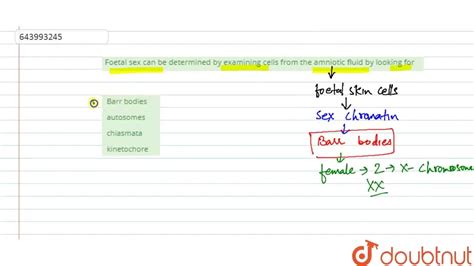 643993245
Foetal sex can be determined by examining cells from the amniotic fluid by looking for
foetal skin cells
Sex chromatin
Barr bodies
female → 2 → X- chromosome
XX
Barr bodies
autosomes
chiasmata
kinetochore
doubtnut